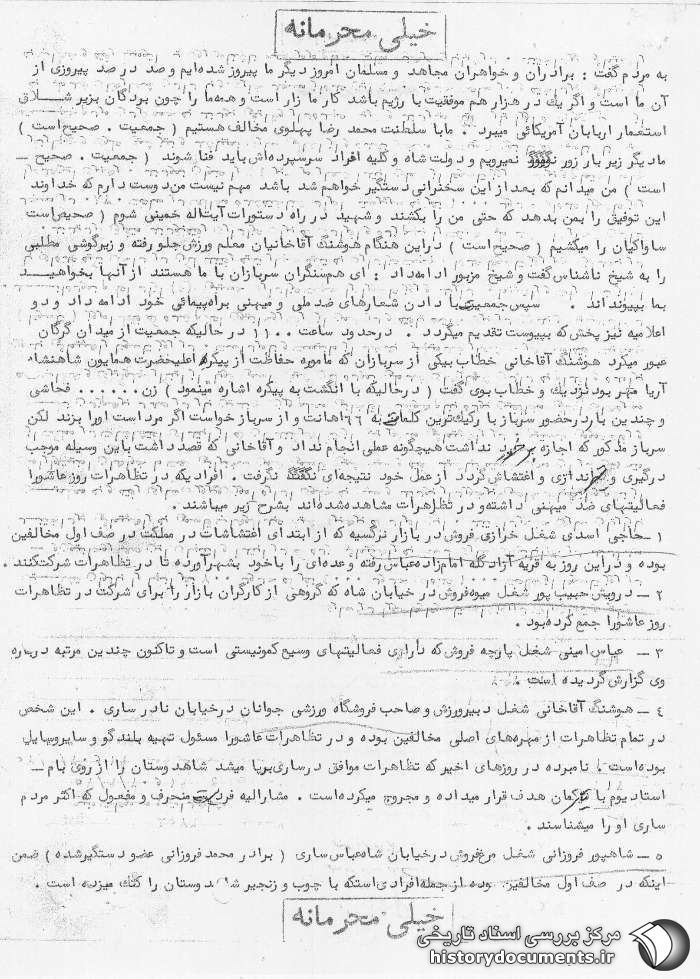 خیلی محرمانه
به مردم گفت : برادران و خواهران مجاهد و مسلمان امروز دیگر ما پیروز شده‌ایم و صد درصد پیروزی از
آن ما است و اگر یك در هزار هم موفقیت با رژیم باشد كار ما زار است و همه‌ما را چون بردگان بزیر شــلاق
استعمار اربابان آمریكائی میبرد . مابا سلطنت محمد رضا پهلوی مخالف هستیم ( جمعیت . صحیح است )
مادیگر زیر بار زور نمیرویم و دولت شاه و كلیه افراد سرسپرده‌اش باید فنا شوند ( جمعیت . صحیح ـ
است ) من میدانم كه بعد از این سخنرانی دستگیر خواهم شد باشد مهم نیست من دوست دارم كه خداوند
این توفیق را بمن بدهد كه حتی من را بكشند و شهید در راه دستورات آیت‌اله خمینی شوم ( صحیح است
ساواكیان را میكشیم ( صحیح است ) دراین هنگام هوشنگ آقاخانیان معلم ورزش جلو رفته و زیرگوشی مطلبی
را به شیخ ناشناس گفت و شیخ مزبور ادامه داد : ای هم‌سنگران سربازان با ما هستند از آنها بخواهیــد
بما بپیوندند . سپس جمعیت با دادن شعارهای ضد ملی و میهنی براه‌پیمائی خود ادامه داد و دو
اعلامیه نیز پخش كه بپیوست تقدیم میگردد . درحدود ساعت ۱۱۰۰ در حالیكه جمعیت از میدان گرگان
عبور میكرد هوشنگ آقاخانی خطاب بیكی از سربازان كه مامور حفاظت از پیكره اعلیحضرت همایون شاهنشاه
آریا مهر بود نزدیك و خطاب بوی گفت ( درحالیكه با انگشت به پیكره اشاره مینمود ) زن...... فحاشی
و چندین بار در حضور سرباز با ركیك‌ترین كلمات به ۶۶ اهانت و از سرباز خواست اگر مرد است اورا بزند لكن
سرباز مذكور كه اجازه برخورد نداشت هیچگونه عملی انجام نداد و آقاخانی كه قصد داشت باین وسیله موجب
درگیری و تیراندازی و اغتشاش گردد ازعمل خود نتیجه‌ای نگرفت . افرادیكه در تظاهرات روز عاشورا
فعالیتهای ضد میهنی داشته و در تظاهرات مشاهده شده‌اند بشرح زیر میباشند .
۱ ـ حاجی اسدی شغل خرازی فروش در بازار نرگسیه كه از ابتدای اغتشاشات در مملكت در صف اول مخالفین
بوده و دراین روز به قریه آزادگله امام‌زاده‌عباس رفته و عده‌ای را باخود بشهر آورده تا در تظاهرات شركت كنند .
۲ ـ درویش حبیب پور شغل میوه‌فروش در خیابان شاه كه گروهی از كارگران بازار را برای شركت در تظاهرات
روز عاشورا جمع كرده‌بود .
۳ ـ عباس امینی شغل پارچه فروش كه دارای فعالیتهای وسیع كمونیستی است و تاكنون چندین مرتبه درباره
وی گزارش گردیده است .
٤ ـ هوشنگ آقاخانی شغل دبیرورزش و صاحب فروشگاه ورزشی جوانان درخیابان نادر ساری . این شخص
در تمام تظاهرات از مهره‌های اصلی مخالفین بوده و در تظاهرات عاشورا مسئول تهیه بلندگو و سایروسایل
بوده‌است . نامبرده در روزهای اخیر كه تظاهرات موافق درساری برپا میشد شاهدوستان را از روی بام ـ
استادیوم با تیركمان هدف قرار میداده و مجروح میكرده‌است . مشارالیه فردی منحرف و مفعول كه اكثر مردم
ساری او را میشناسند .
٥ ـ شاهپور فروزانی شغل مرغ‌فروش درخیابان شاه‌عباس ساری ( برادر محمد فروزانی عضو دستگیرشده ) ضمن
اینكه در صف اول مخالفین بوده از جمله‌افرادی استكه با چوب و زنجیر شاهدوستان را كتك میزده است .
خیلی محرمانه
مرکز بررسی اسناد تاریخی
historydocuments.ir